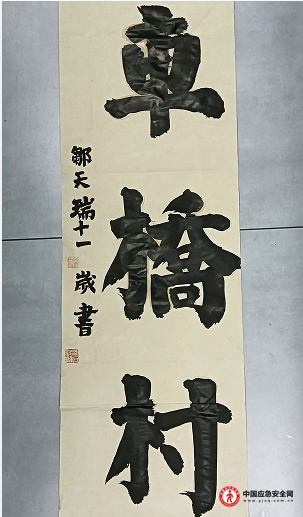 車橋村
鄒天瑞十一歲書
中国应急安全网
www.yjzq.com.cn